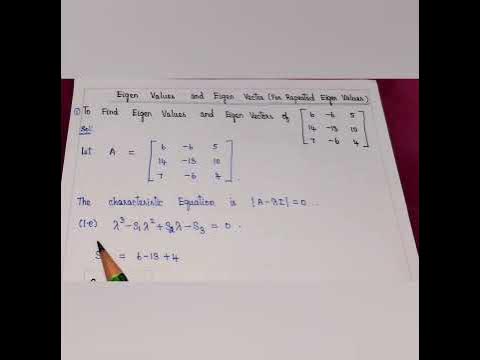 Eigen Values and Eigen Vector (For Repeated Eigen Values)
① To Find Eigen Values and Eigen Vectors of [ 6 -6 5
14 -13 10
7 -6 4 ]
Sol:
let A = [ 6 -6 5
14 -13 10
7 -6 4 ].
The characteristic Equation is |A-λI|=0.
(i.e) λ³-S₁λ²+S₂λ-S₃ = 0.
S = 6-13+4